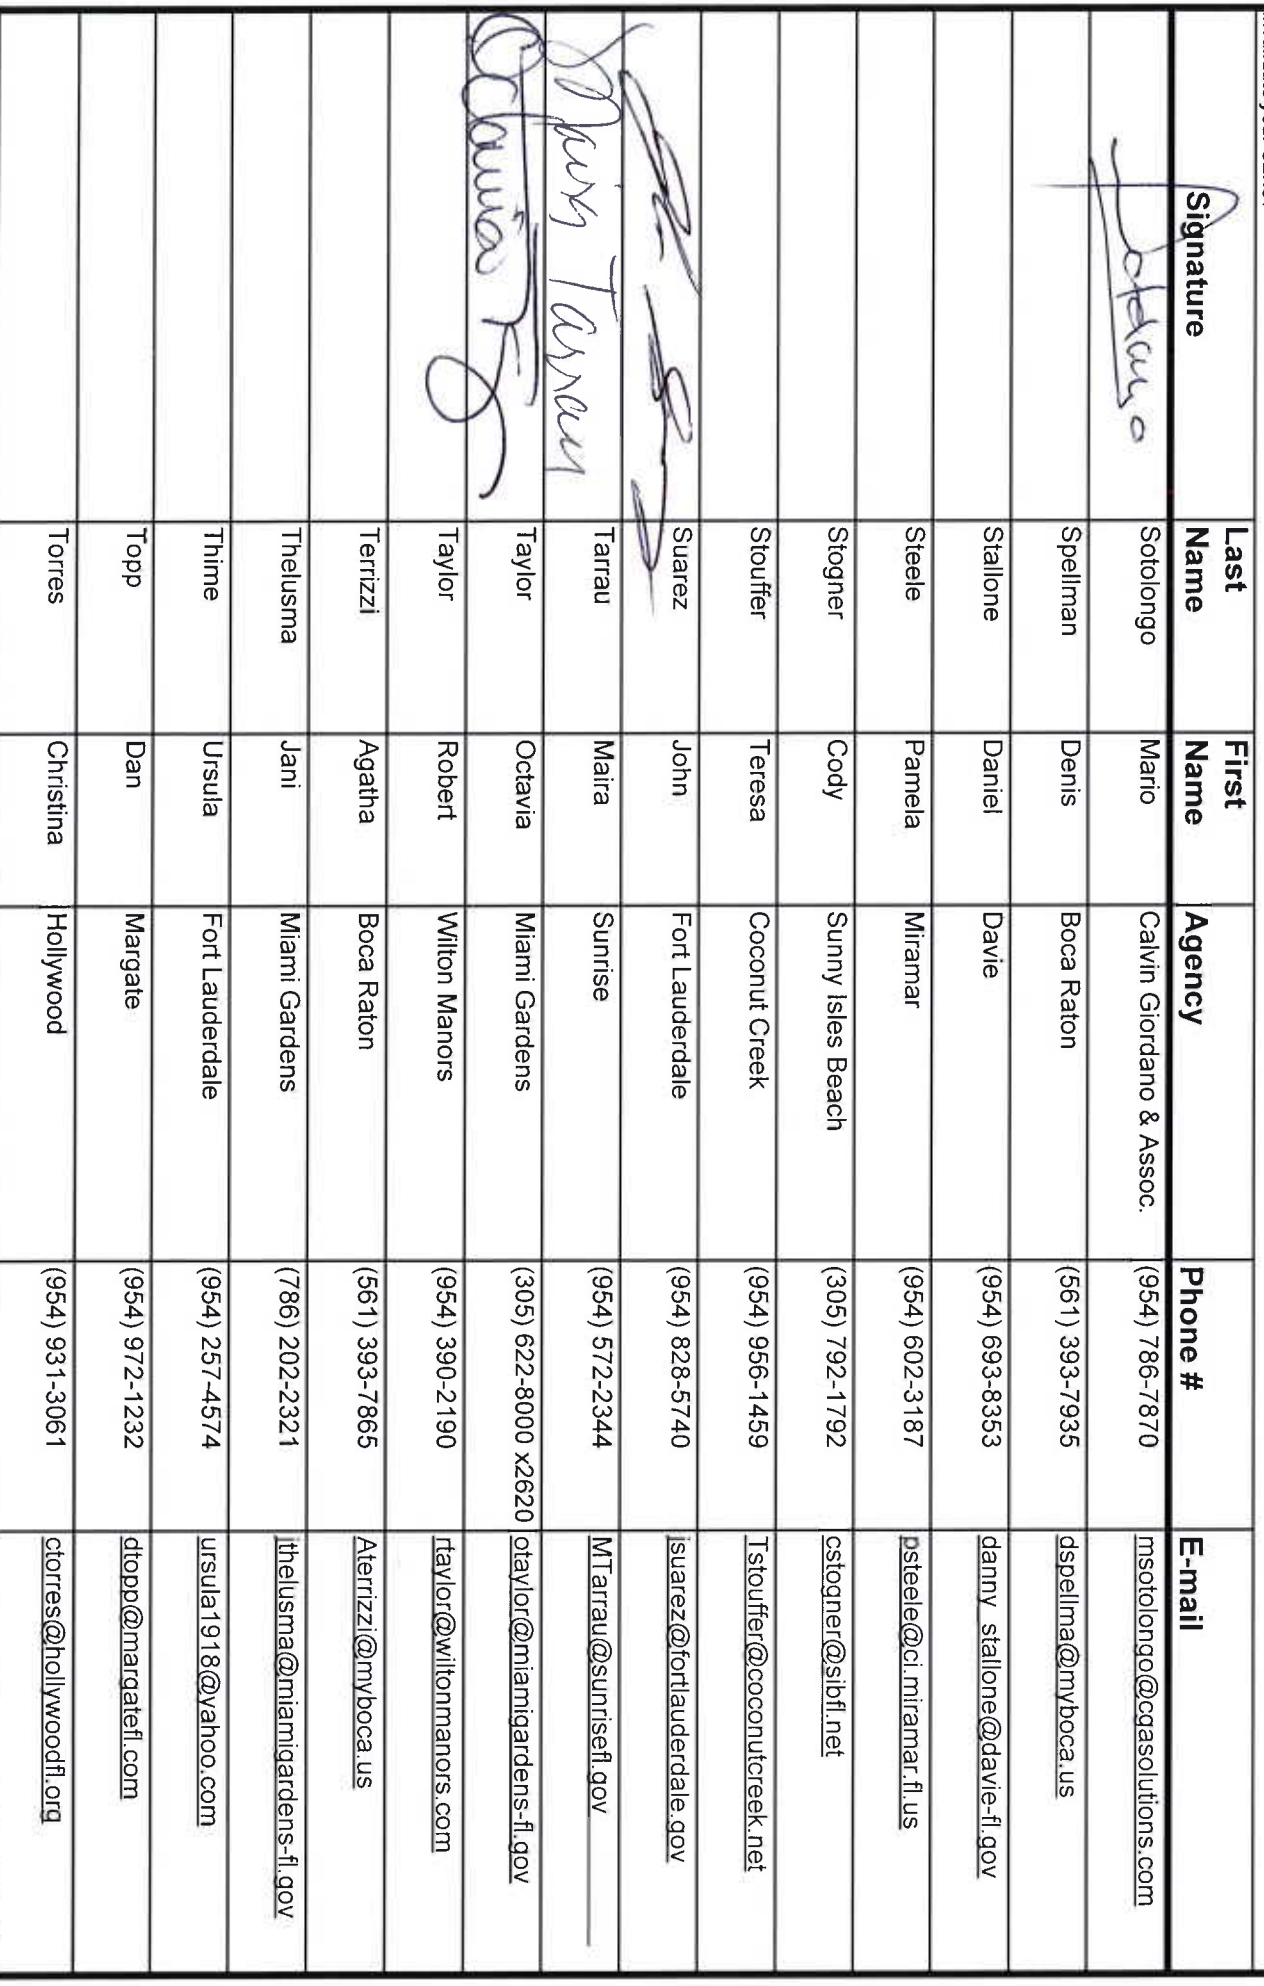 Signature Last Name First Name Agency Phone # E-mail
Sotolongo Sotolongo Mario Calvin Giordano & Assoc. (954) 786-7870 msotolongo@cgasolutions.com
Spellman Denis Boca Raton (561) 393-7935 dspellma@myboca.us
Stallone Daniel Davie (954) 693-8353 danny_stallone@davie-fl.gov
Steele Pamela Miramar (954) 602-3187 psteele@ci.miramar.fl.us
Stogner Cody Sunny Isles Beach (305) 792-1792 cstogner@sibfl.net
Stouffer Teresa Coconut Creek (954) 956-1459 Tstouffer@coconutcreek.net
Suarez John Fort Lauderdale (954) 828-5740 jsuarez@fortlauderdale.gov
Maira Tarrau Tarrau Maira Sunrise (954) 572-2344 MTarrau@sunrisefl.gov
Octavia T Taylor Octavia Miami Gardens (305) 622-8000 x2620 otaylor@miamigardens-fl.gov
Taylor Robert Wilton Manors (954) 390-2190 rtaylor@wiltonmanors.com
Terrizzi Agatha Boca Raton (561) 393-7865 Aterrizzi@myboca.us
Thelusma Jani Miami Gardens (786) 202-2321 jthelusma@miamigardens-fl.gov
Thime Ursula Fort Lauderdale (954) 257-4574 ursula1918@yahoo.com
Topp Dan Margate (954) 972-1232 dtopp@margatefl.com
Torres Christina Hollywood (954) 931-3061 ctorres@hollywoodfl.org